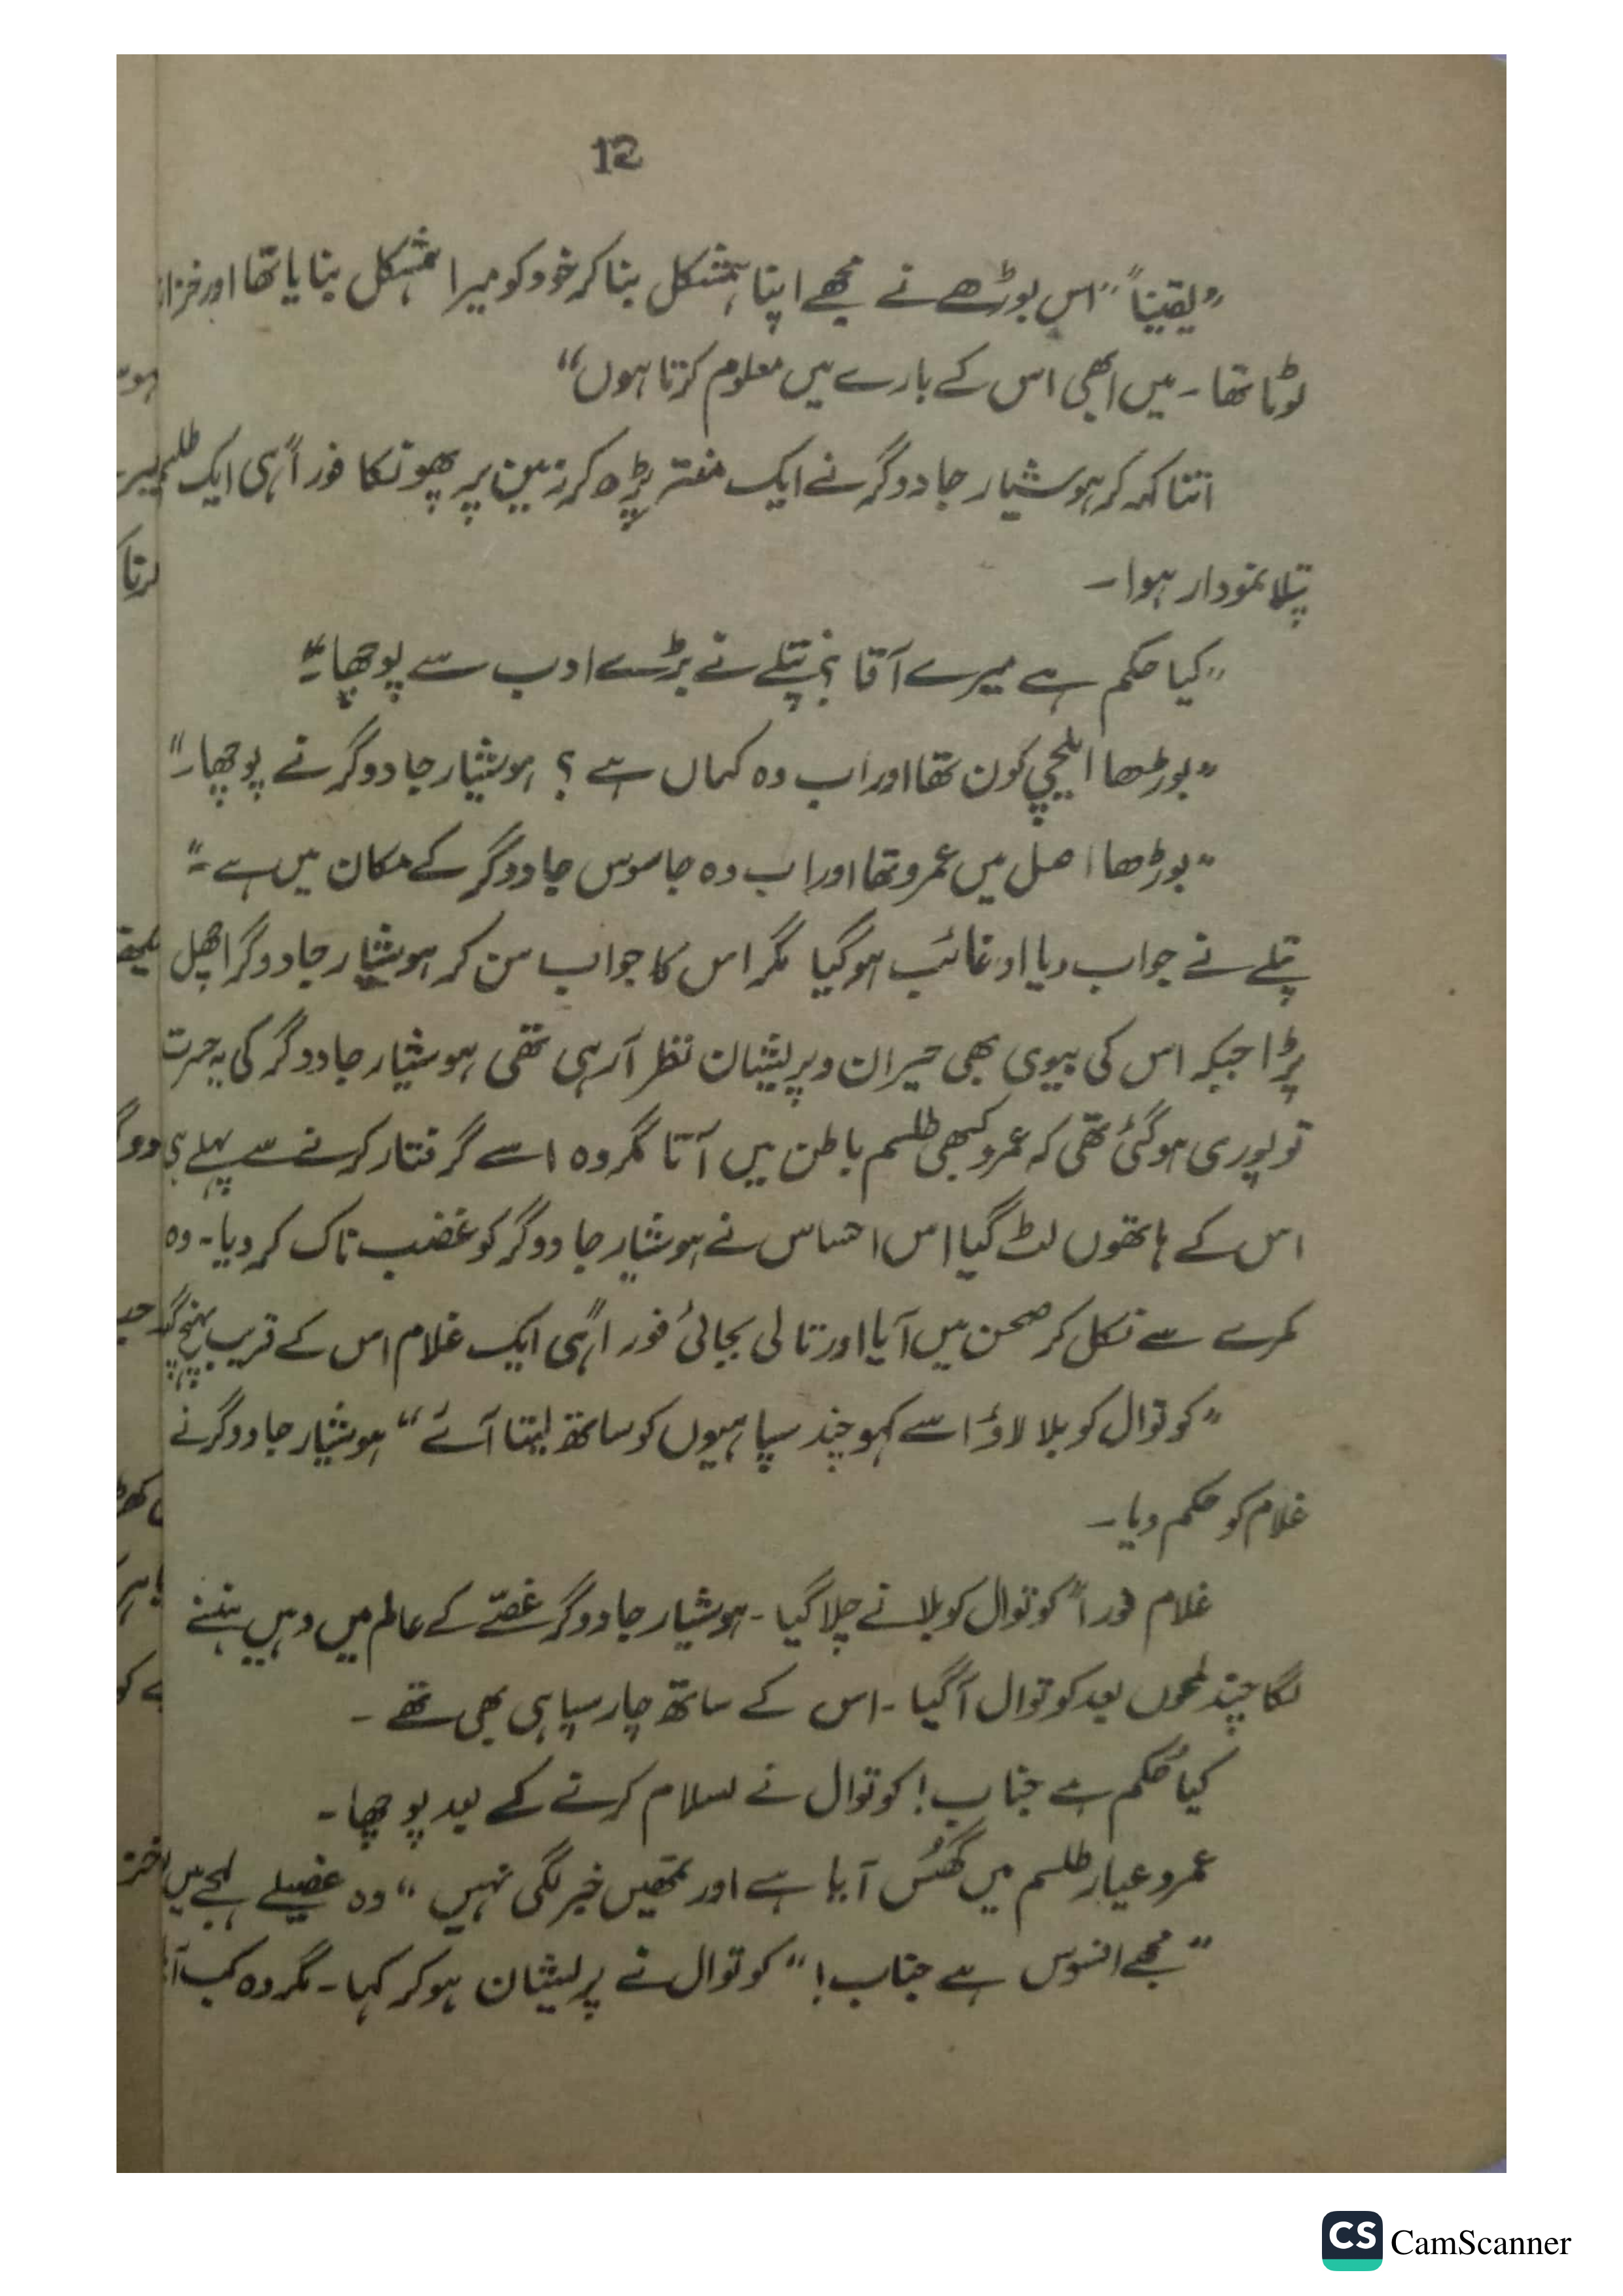 12
”یقیناً“ اس بوڑھے نے مجھے اپنا ہمشکل بنا کر خود کو میرا ہمشکل بنایا تھا اور
لوٹا تھا ۔ میں ابھی اس کے بارے میں معلوم کرتا ہوں“
اتنا کہہ کر ہوشیار جادوگر نے ایک منتر پڑھ کر زمین پر پھونکا فوراً ہی ایک
پتلا نمودار ہوا ۔
”کیا حکم ہے میرے آقا ؟ پتلے نے بڑے ادب سے پوچھا ۔“
”بوڑھا ایلچی کون تھا اور اب وہ کہاں ہے ؟ ہوشیار جادوگر نے پوچھا ۔“
”بوڑھا اصل میں عمرو تھا اور اب وہ جاسوس جادوگر کے مکان میں ہے ۔“
پتلے نے جواب دیا اور غائب ہو گیا مگر اس کا جواب سن کر ہوشیار جادوگر اچھل
پڑا جبکہ اس کی بیوی بھی حیران و پریشان نظر آ رہی تھی ہوشیار جادوگر کی یہ حسرت
تو پوری ہو گئی تھی کہ عمرو کبھی طلسم باطن میں آتا مگر وہ اسے گرفتار کرنے سے پہلے ہی
اس کے ہاتھوں لٹ گیا اس احساس نے ہوشیار جادوگر کو غضب ناک کر دیا ۔ وہ
کمرے سے نکل کر صحن میں آیا اور تالی بجائی فوراً ہی ایک غلام اس کے قریب پہنچ
”کوتوال کو بلا لاؤ اسے کہو چند سپاہیوں کو ساتھ لیتا آئے“ ہوشیار جادوگر نے
غلام کو حکم دیا ۔
غلام فوراً کوتوال کو بلانے چلا گیا ۔ ہوشیار جادوگر غصّے کے عالم میں وہیں
لگا چند لمحوں بعد کوتوال آ گیا ۔ اس کے ساتھ چار سپاہی بھی تھے ۔
کیا حُکم ہے جناب ! کوتوال نے سلام کرنے کے بعد پوچھا ۔
عمرو عیار طلسم میں گھُس آیا ہے اور تمھیں خبر لگی نہیں“ وہ غصیلے لہجے میں
”مجھے افسوس ہے جناب !“ کوتوال نے پریشان ہو کر کہا ۔ مگر وہ کب
CS CamScanner